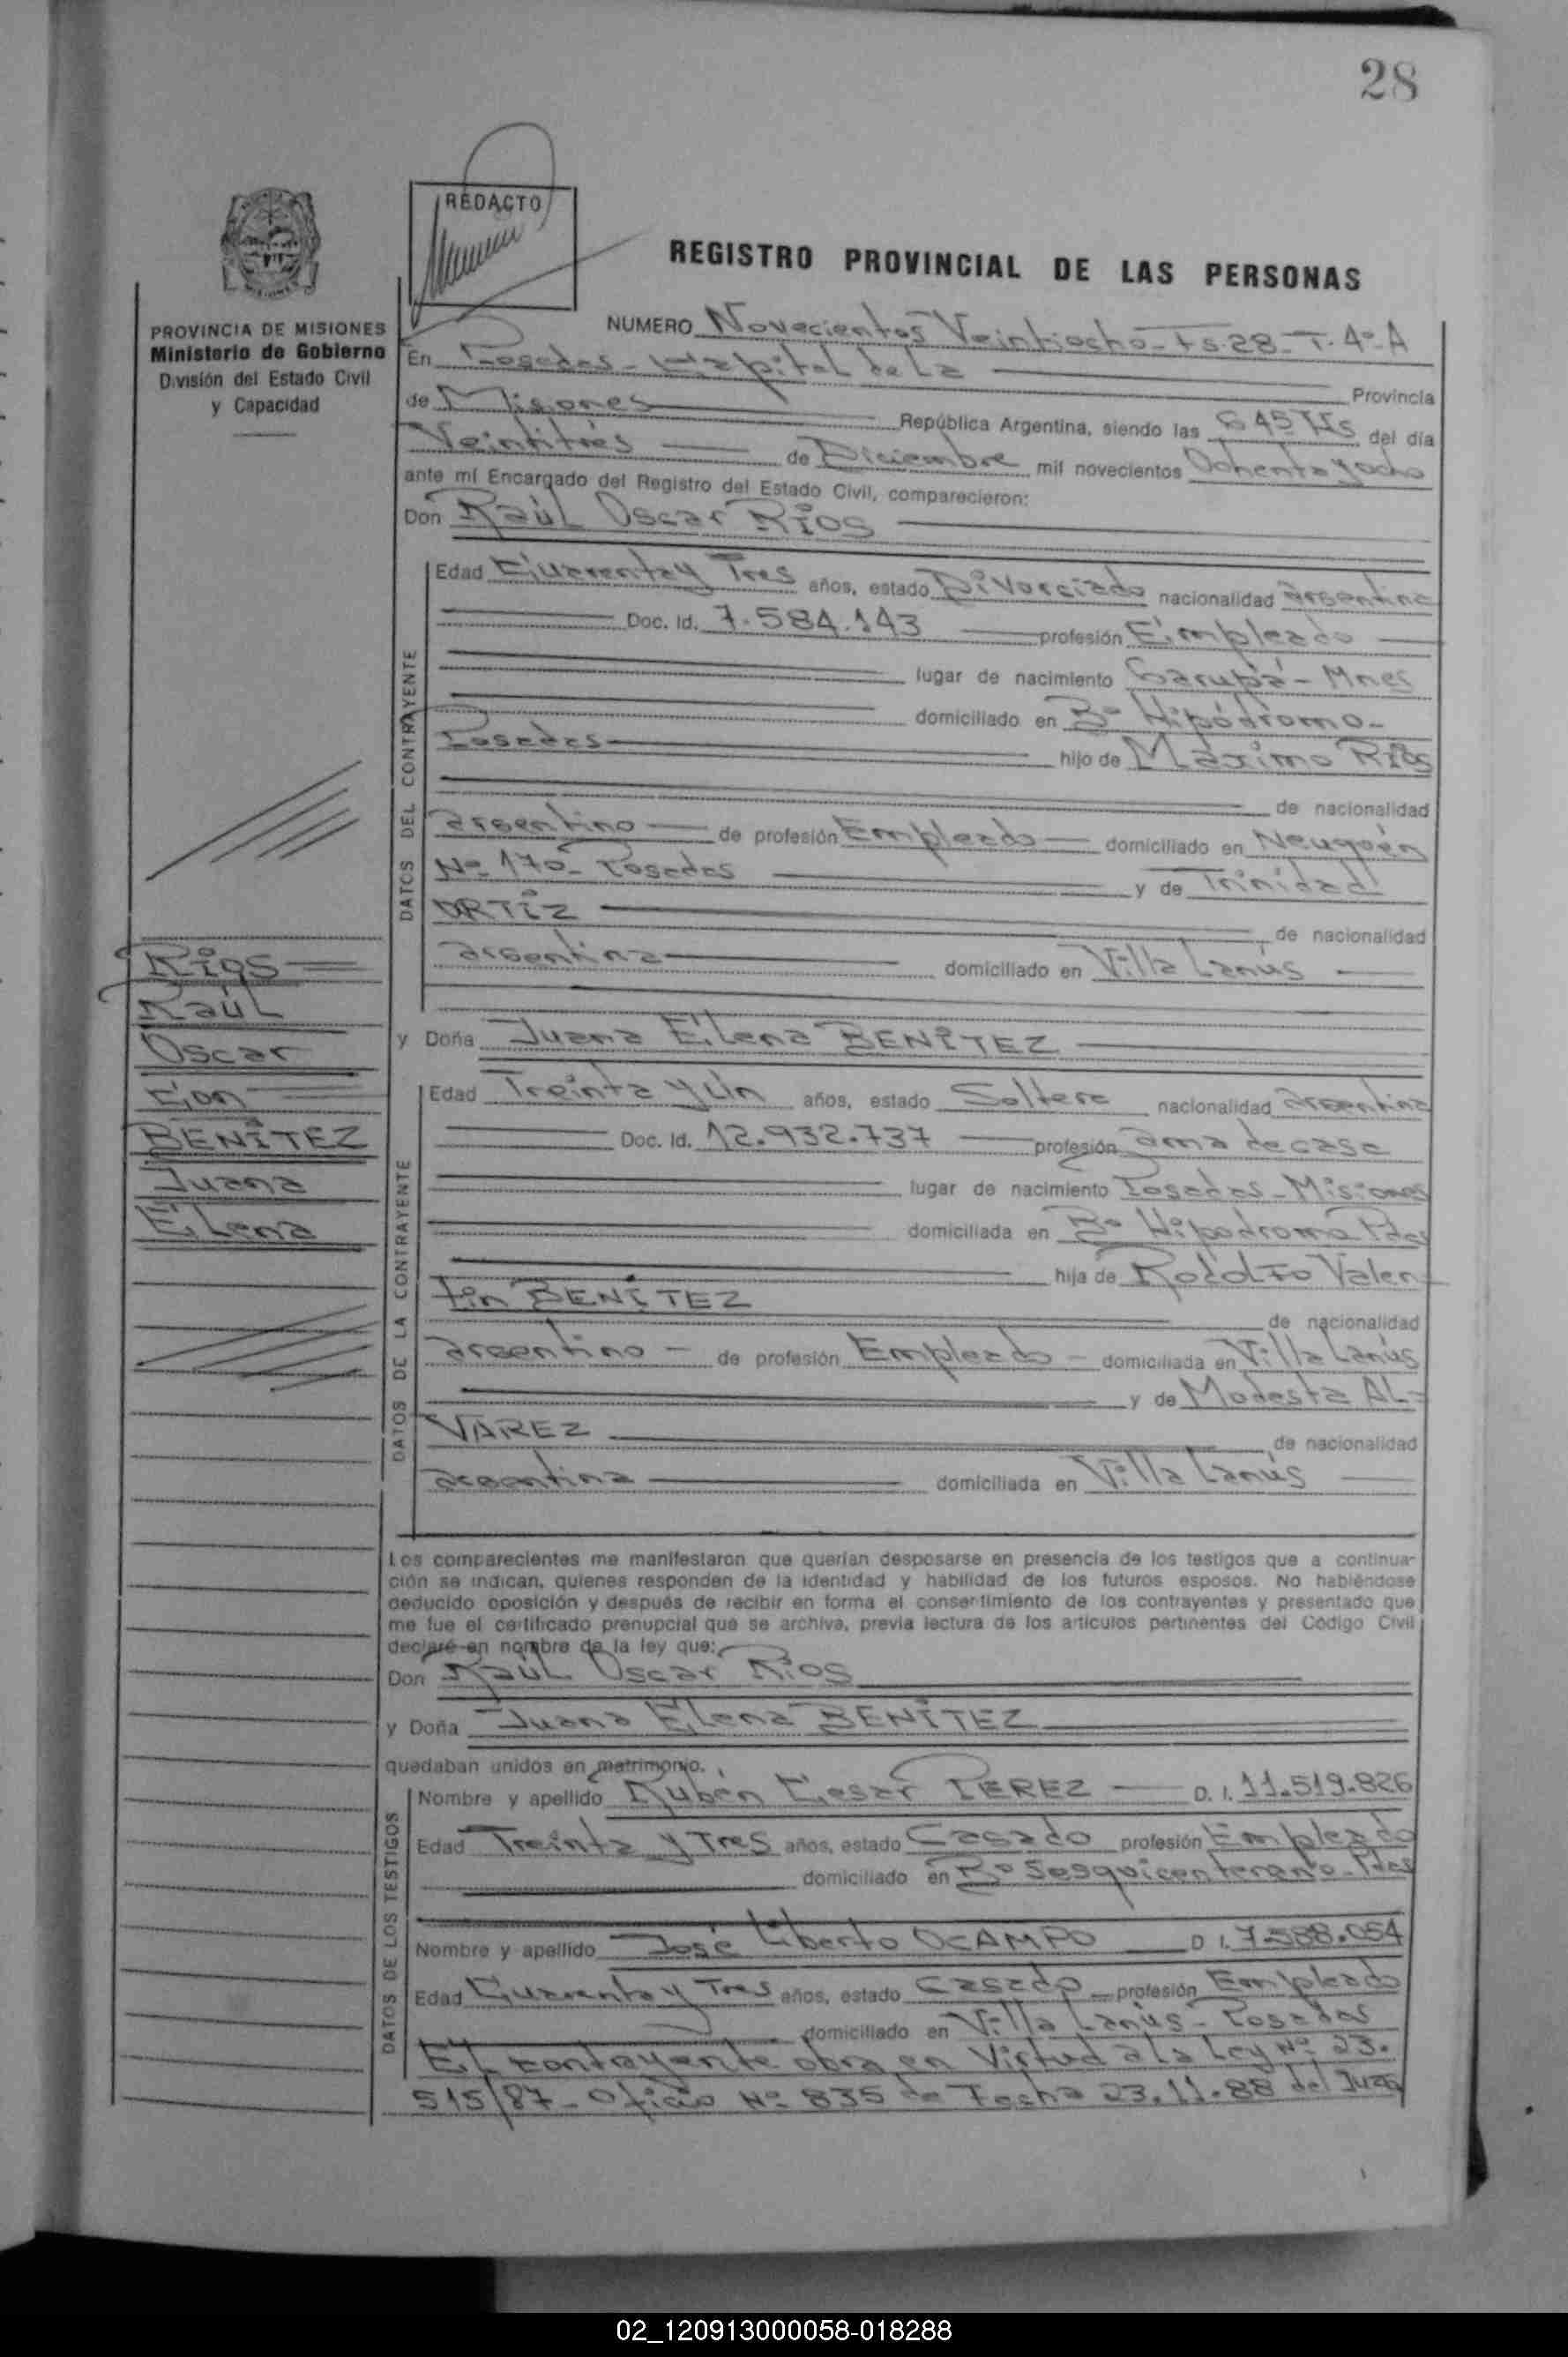 28
REDACTO
REGISTRO PROVINCIAL DE LAS PERSONAS
PROVINCIA DE MISIONES
Ministerio de Gobierno
División del Estado Civil
y Capacidad
NUMERO Novecientos Veintiocho - Fs 28 - T. 4º A
En Posadas - Capital de La Provincia
de Misiones República Argentina, siendo las 8 45 Hs del día
Veintitrés de Diciembre mil novecientos Ochenta y ocho
ante mí Encargado del Registro del Estado Civil, comparecieron:
Don Raúl Oscar RIOS
DATOS DEL CONTRAYENTE
Edad Cuarenta y Tres años, estado Divorciado nacionalidad argentina
Doc. Id. 7.584.143 profesión Empleado
lugar de nacimiento Garupá - Mnes
domiciliado en Bº Hipódromo -
Posadas hijo de Máximo Ríos
de nacionalidad
argentino de profesión Empleado domiciliado en Neuquén
Nº 170 - Posadas y de Trinidad
ORTIZ de nacionalidad
argentina domiciliado en Villa Lanús
Rios
Raúl
Oscar
Con
BENITEZ
Juana
Elena
y Doña Juana Elena BENITEZ
DATOS DE LA CONTRAYENTE
Edad Treinta y Un años, estado Soltera nacionalidad argentina
Doc. Id. 12.932.737 profesión ama de casa
lugar de nacimiento Posadas - Misiones
domiciliada en Bº Hipodromo Pdas
hija de Rodolfo Valen
tin BENITEZ
de nacionalidad
argentino - de profesión Empleado - domiciliada en Villa Lanús
y de Modesta AL-
VAREZ de nacionalidad
argentina domiciliada en Villa Lanús
Los comparecientes me manifestaron que querían desposarse en presencia de los testigos que a continua-
ción se indican, quienes responden de la identidad y habilidad de los futuros esposos. No habiéndose
deducido oposición y después de recibir en forma el consentimiento de los contrayentes y presentado que
me fue el certificado prenupcial que se archiva, previa lectura de los artículos pertinentes del Código Civil
declaré en nombre de la ley que:
Don Raúl Oscar Rios
y Doña Juana Elena BENITEZ
quedaban unidos en matrimonio.
DATOS DE LOS TESTIGOS
Nombre y apellido Rubén Cesar PEREZ D. I. 11.519.826
Edad Treinta y Tres años, estado Casado profesión Empleado
domiciliado en Bº Sesquicentenario - Pdas
Nombre y apellido José Liberto OCAMPO D I. 7.588.054
Edad Cuarenta y Tres años, estado Casado profesión Empleado
domiciliado en Villa Lanús - Posadas
El contrayente obra en Virtud a la Ley Nº 23.
515/87 - Oficio Nº 835 de Fecha 23.11.88 del Juzg
02_120913000058-018288